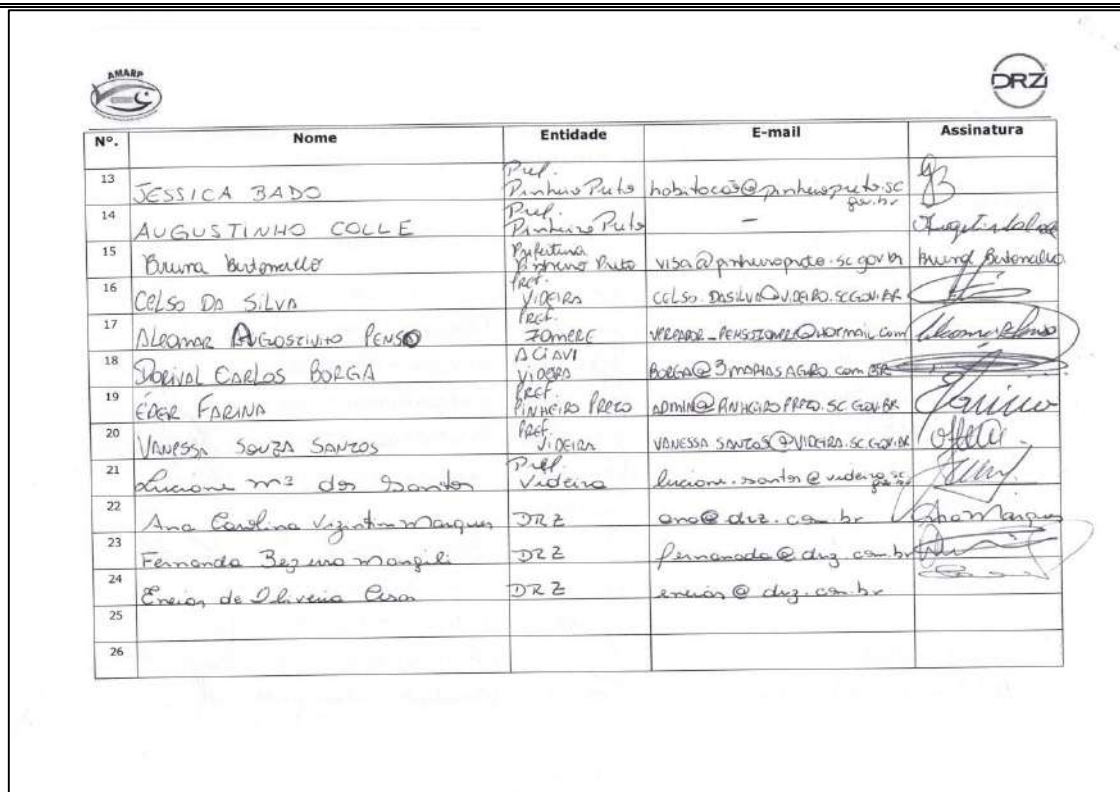 AMARP
DRZ
Nº. Nome Entidade E-mail Assinatura
13 JESSICA BADO Pref. Pinheiro Preto habitacao@pinheiropreto.sc.gov.br
14 AUGUSTINHO COLLE Pref. Pinheiro Preto -
15 Bruna Bertoncello Prefeitura Pinheiro Preto visa@pinheiropreto.sc.gov.br Bruna Bertoncello
16 CELSO DA SILVA Pref. VIDEIRA CELSO.DASILVA@VIDEIRA.SC.GOV.BR
17 AUGOSTINHO PENSO Pref.
18 DORIVAL CARLOS BORGA ACIAVI VIDEIRA BORGA@3MARIASAGRO.COM.BR
19 ÉDER FARINA Pref. PINHEIRO PRETO ADMIN@PINHEIROPRETO.SC.GOV.BR
20 VANESSA SOUZA SANTOS Pref. VIDEIRA VANESSA.SANTOS@VIDEIRA.SC.GOV.BR
21 Luciane Mª dos Santos Pref. Videira luciane.santos@videira.sc.gov.br
22 Ana Carolina Vizintim Marques DRZ ana@drz.com.br Ana Marques
23 Fernanda Bezerra Mangili DRZ @drz.com.br
24 de Oliveira DRZ eneias@drz.com.br
25
26